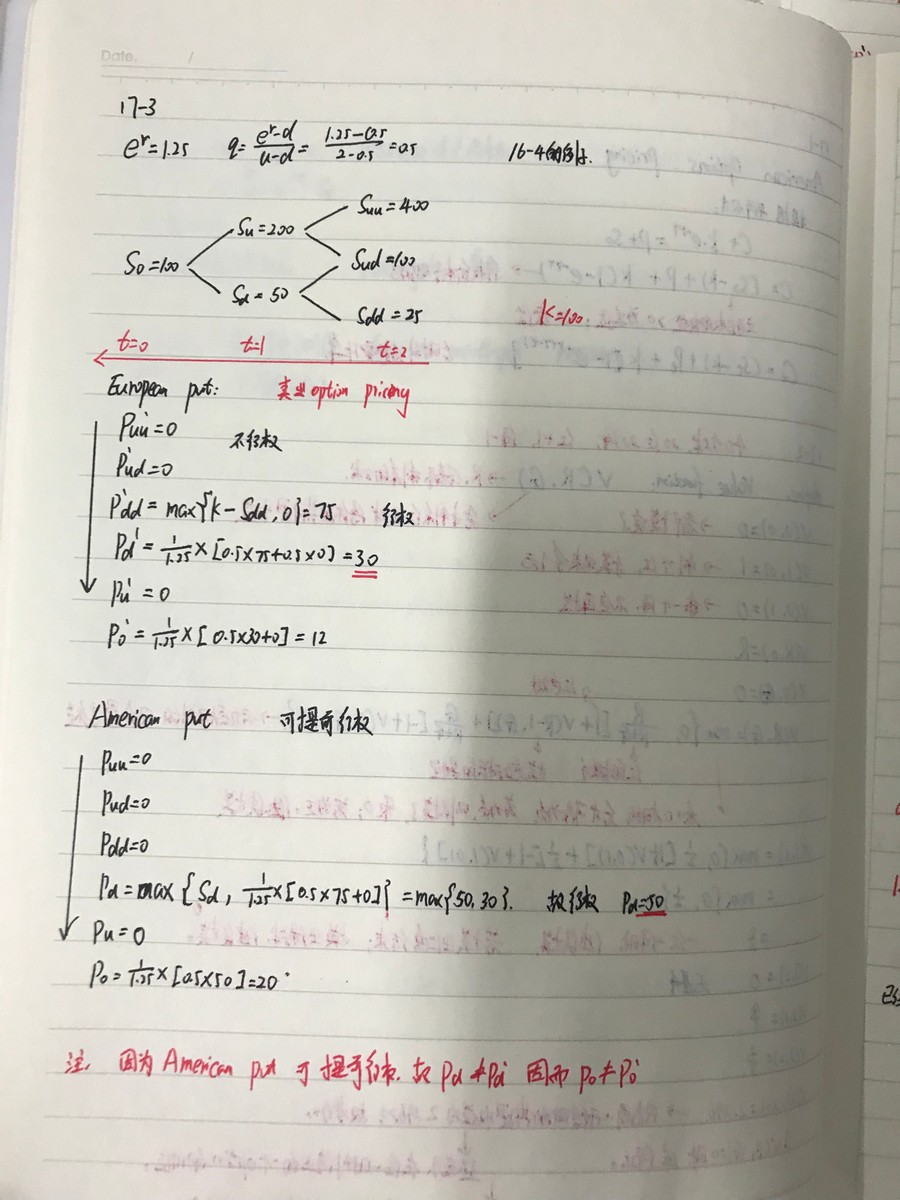 Date. /
17-3
e^r=1.25 q=\frac{e^r-d}{u-d}=\frac{1.25-0.5}{2-0.5}=0.5 16-4的例子.
Suu=400
Su=200
S0=100 Sud=100
Sd=50
Sdd=25 K=100
t=0 t=1 t=2
European put: 美业option pricing
Puu'=0 不行权
Pud'=0
Pdd'=max{K-Sdd,0}=75 行权
Pd'=\frac{1}{1.25}×[0.5×75+0.5×0]=30
Pu'=0
P0'=\frac{1}{1.25}×[0.5×30+0]=12
American put 可提前行权
Puu=0
Pud=0
Pdd=0
Pd=max{Sd, \frac{1}{1.25}×[0.5×75+0]}=max{50,30}. 故行权 Pd=50
Pu=0
P0=\frac{1}{1.25}×[0.5×50]=20
注. 因为American put 可提前行权. 故Pd≠Pd' 因而P0≠P0'